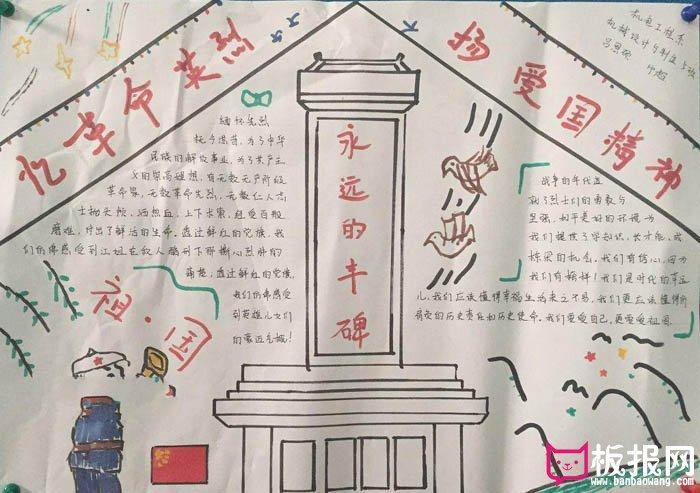 忆革命英烈
扬爱国精神
机电工程系
永远的丰碑
缅怀先烈
抚今思昔，为了中华
民族的解放事业，为了共产主
义的崇高理想，有无数无产阶级
革命家，无数革命先烈，无数仁人志
士抛头颅，洒热血，上下求索，赴受百般
磨难，付出了鲜活的生命。透过鲜红的党旗，我
们仿佛感受到江姐在敌人酷刑下那撕心烈肺的
痛楚，透过鲜红的党旗，
我们仿佛感受
到英雄儿女们
的豪迈气概！
祖·国
战争的年代造
就了烈士们的勇敢与
坚强，和平更好的环境为
我们提供了学知识，长才能，成
栋梁的机会。我们有信心，因为
我们有榜样！我们是时代的幸运
儿，我们应该懂得幸福生活来之不易，我们更应该懂得所
肩负的历史责任和历史使命。我们要爱自己，更要爱祖国
板报网
www.banbaowang.com